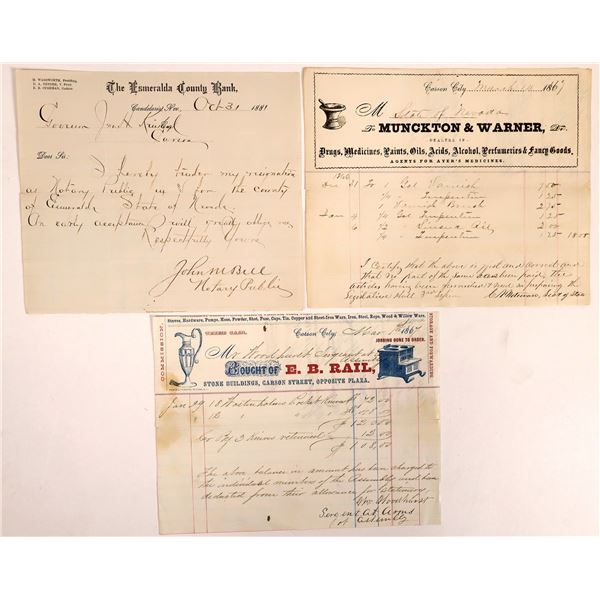 The Esmeralda County Bank,
Candelaria, Nev. Oct 31 1881
Governor
Carson
Dear Sir.
I hereby tender my resignation
as Notary Public in & for the county
of Esmeralda State of Nevada.
An early acceptance will greatly oblige me
Respectfully Yours
John M Bell
Notary Public
Carson City, 1867
M State of Nevada
To MUNCKTON & WARNER, Dr.
DEALERS IN
Drugs, Medicines, Paints, Oils, Acids, Alcohol, Perfumeries & Fancy Goods,
AGENTS FOR AYER'S MEDICINES.
31 To 1 Gal Varnish
1/4 " Turpentine 1.25
Varnish Brush
4 1/4 Gal Turpentine 1.25
6 1/2 " Linseed Oil 2.00
1/4 " Turpentine 1.25 18.00
I Certify that the above is just and correct and
that no part of the same has been paid, the
articles having been furnished & used in preparing the
Legislative Hall 3rd Session
Stoves, Hardware, Pumps, Hose, Powder, Shot, Fuse, Caps, Tin, Copper and Sheet-Iron Ware, Iron, Steel, Rope, Wood & Willow Ware.
COMMISSION.
TERMS CASH.
Carson City, 1867
JOBBING DONE TO ORDER.
Mr
BOUGHT OF E. B. RAIL,
STONE BUILDINGS, CARSON STREET, OPPOSITE PLAZA.
Jan 29 18 Pocket Knives
$ 120.00
Cr By 3 Knives returned 12.00
$ 108.00
The above balance or amount has been charged
to the individual members of the Assembly and been
deducted from their allowance for Stationery
Geo Woodhurst
Sergeant At Arms
of Assembly